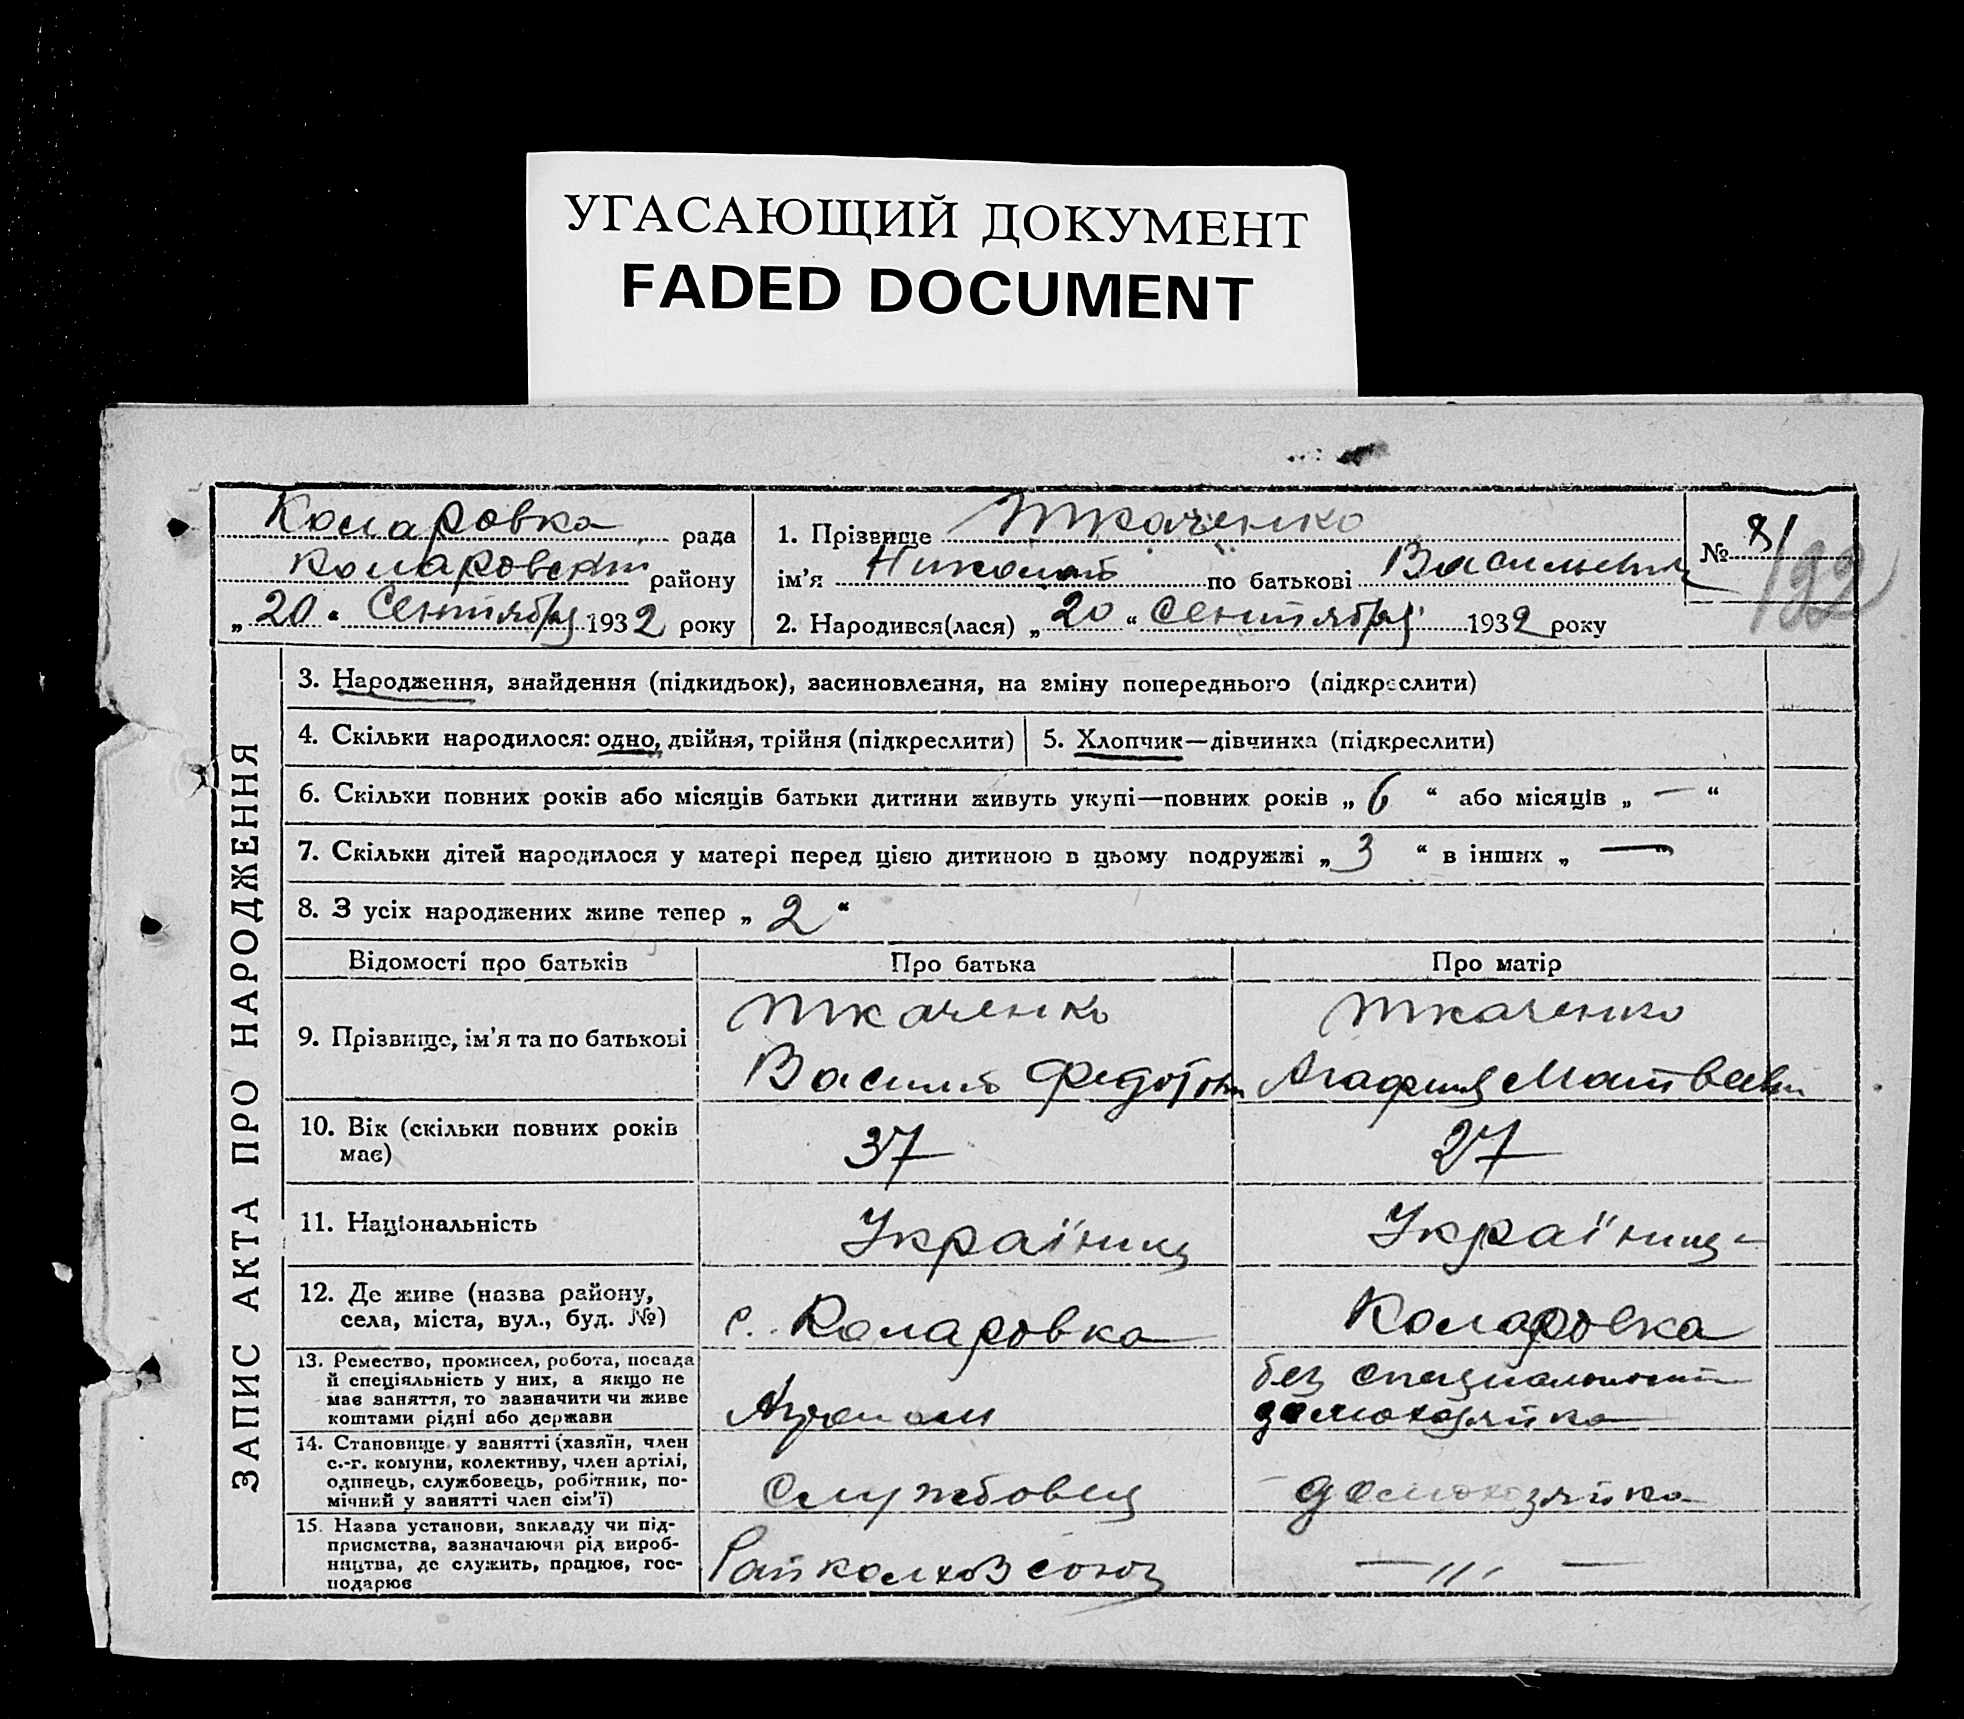 УГАСАЮЩИЙ ДОКУМЕНТ
FADED DOCUMENT
Коларовка рада
Коларовский району
„ 20 “ Сентября 1932 року
1. Прізвище Ткаченко
ім’я Николай по батькові Васильевич
2. Народився(лася) „ 20 “ Сентября 1932 року
№ 81
192
ЗАПИС АКТА ПРО НАРОДЖЕННЯ
3. Народження, знайдення (підкидьок), засиновлення, на зміну попереднього (підкреслити)
4. Скільки народилося: одно, двійня, трійня (підкреслити)
5. Хлопчик—дівчинка (підкреслити)
6. Скільки повних років або місяців батьки дитини живуть укупі—повних років „ 6 “ або місяців „ — “
7. Скільки дітей народилося у матері перед цією дитиною в цьому подружжі „ 3 “ в інших „ — “
8. З усіх народжених живе тепер „ 2 “
Відомості про батьків Про батька Про матір
9. Прізвище, ім’я та по батькові
Ткаченко
Василий Федотов
Ткаченко
Агафия Матвеев
10. Вік (скільки повних років
має)
37
27
11. Національність
Україниц
Україниц-
12. Де живе (назва району,
села, міста, вул., буд. №)
с. Коларовка
Коларовка
13. Ремество, промисел, робота, посада
й спеціяльність у них, а якщо не
має заняття, то зазначити чи живе
коштами рідні або держави
Агроном
без специальности
домохозяйка
14. Становище у занятті (хазяїн, член
с.-г. комуни, колективу, член артілі,
одинець, службовець, робітник, по-
мічний у занятті член сім’ї)
Службовец
домохозяйка
15. Назва установи, закладу чи під-
приємства, зазначаючи рід вироб-
ництва, де служить, працює, гос-
подарює
Райколхозсоюз
— „ —